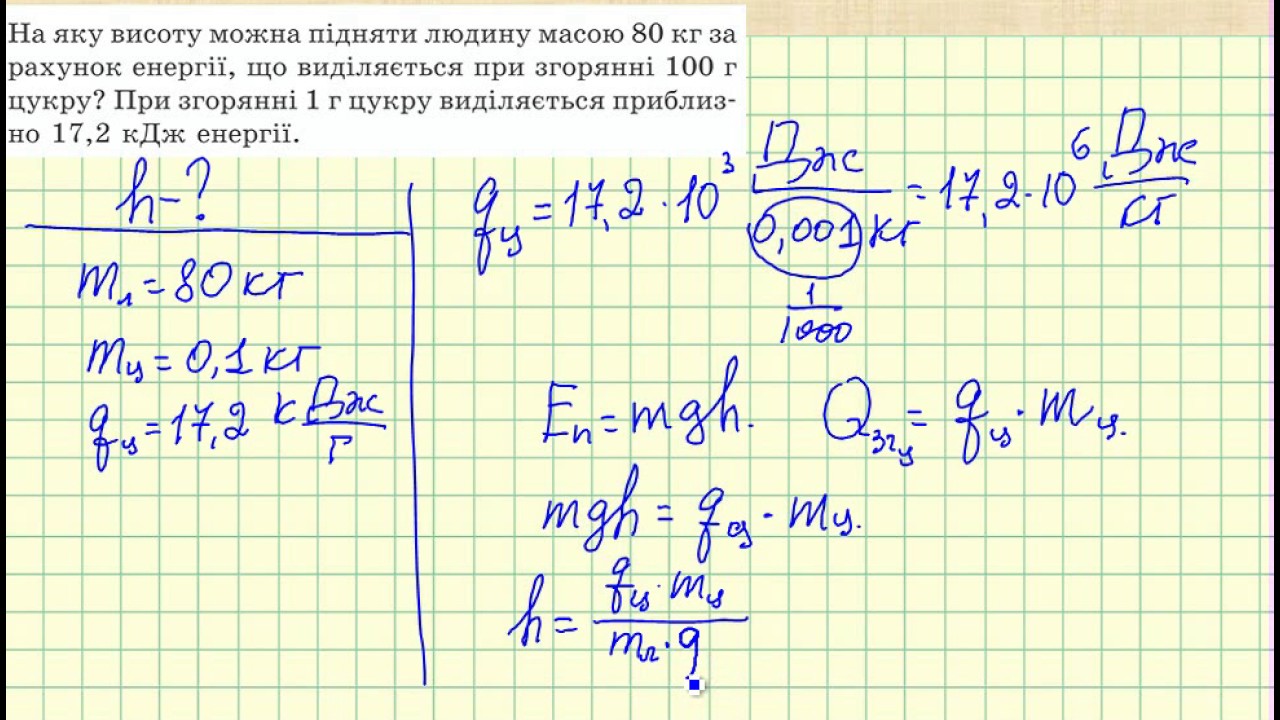 На яку висоту можна підняти людину масою 80 кг за
рахунок енергії, що виділяється при згорянні 100 г
цукру? При згорянні 1 г цукру виділяється приблиз-
но 17,2 кДж енергії.
h - ?
mл = 80 кг
mц = 0,1 кг
qц = 17,2 кДж/г
qц = 17,2 · 10³ Дж/0,001 кг = 17,2 · 10⁶ Дж/кг
1/1000
Eп = mgh. Qзгц = qц · mц.
mgh = qц · mц.
h = qц · mц / mл · g